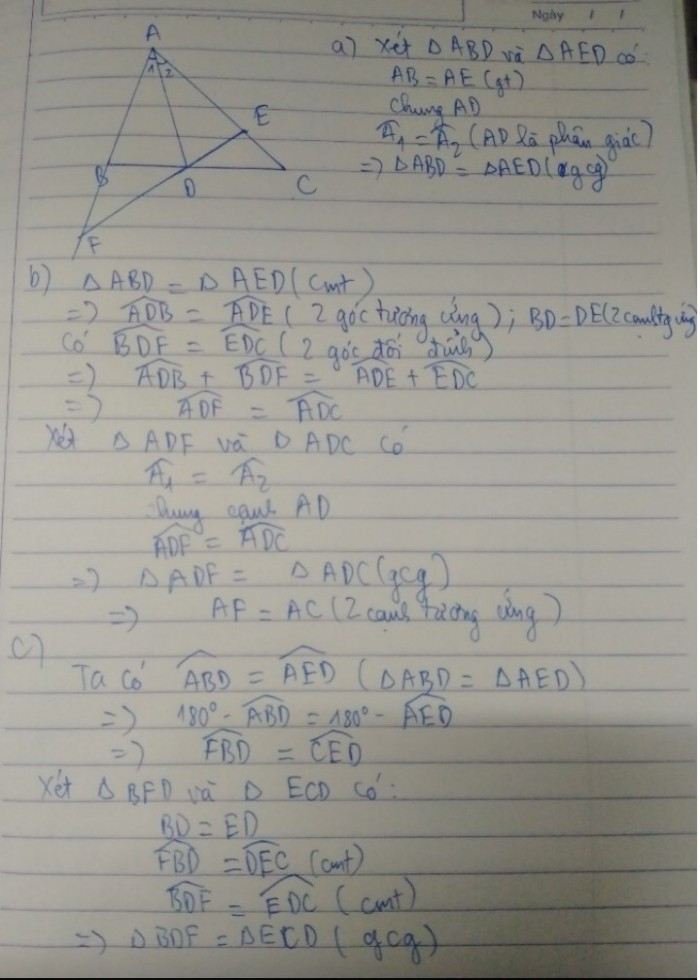 Ngày / /
A
1 2
E
B
D
C
F
a) Xét △ABD và △AED có:
AB = AE (gt)
chung AD
Â1 = Â2 (AD là phân giác)
=> △ABD = △AED (cgc)
b) △ABD = △AED (cmt)
=> ADB = ADE (2 góc tương ứng); BD = DE (2 cạnh tg ứng)
Có BDF = EDC (2 góc đối đỉnh)
=> ADB + BDF = ADE + EDC
=> ADF = ADC
Xét △ADF và △ADC có
Â1 = Â2
chung cạnh AD
ADF = ADC
=> △ADF = △ADC (gcg)
=> AF = AC (2 cạnh tương ứng)
c)
Ta có ABD = AED (△ABD = △AED)
=> 180° - ABD = 180° - AED
=> FBD = CED
Xét △BFD và △ECD có:
BD = ED
FBD = DEC (cmt)
BDF = EDC (cmt)
=> △BDF = △ECD (gcg)